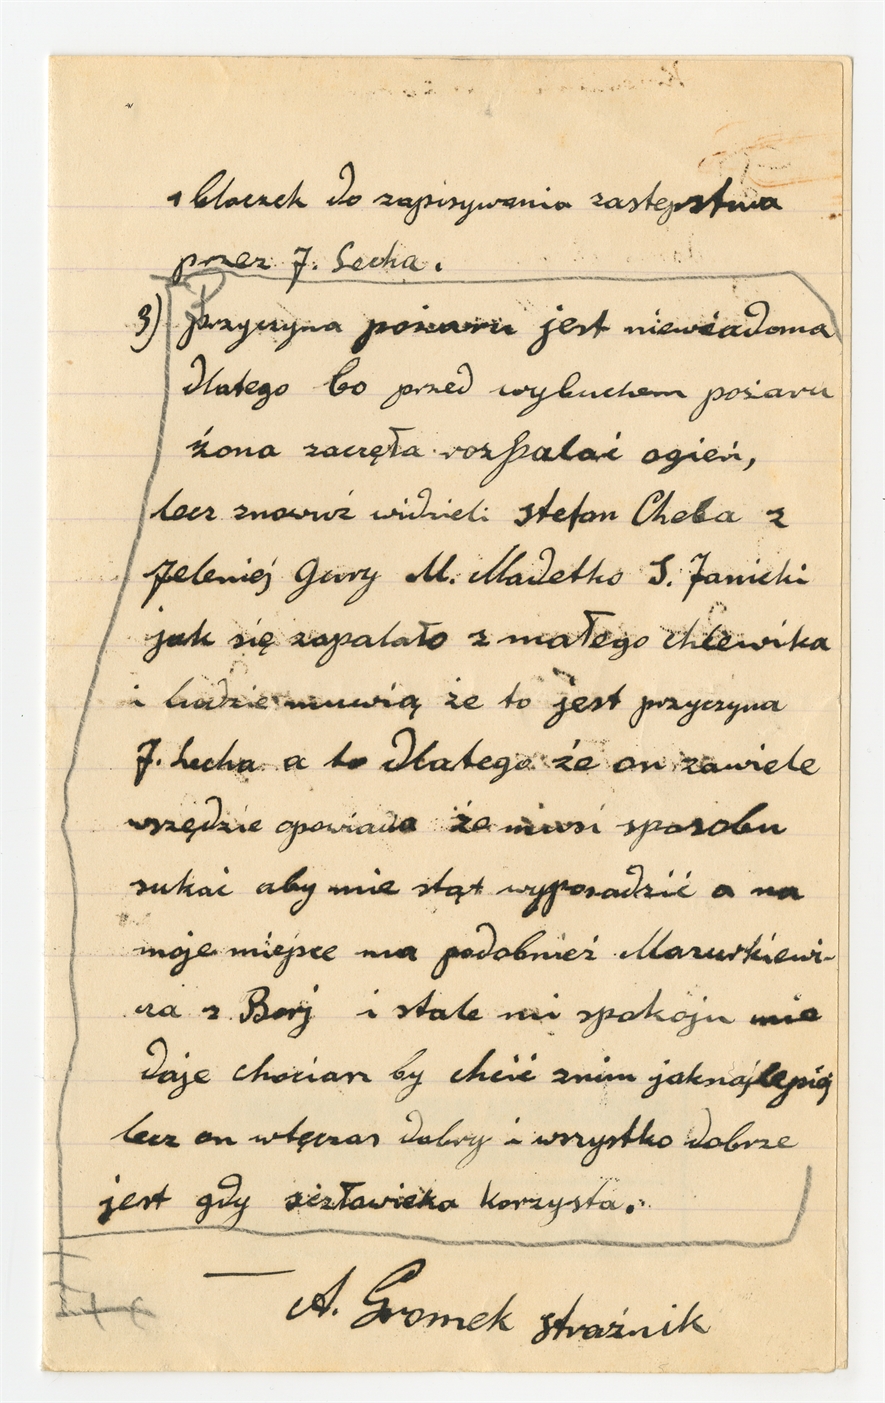 1 bloczek do zapisywania zastepstwa
przez J. Lecha.
3) przyczyna pożaru jest niewiadoma
dlatego bo przed wybuchem pożaru
żona zaczęła rozpalać ogień,
lecz znowuż widzieli stefan Cheba z
Jeleniej Gury M. Madetko S. Janicki
jak się zapalało z małego chlewika
i ludzie muwią że to jest przyczyna
J. Lecha a to dlatego że on zawiele
wszędzie opowiada że musi sposobu
sukać aby mie stąt wyposadzić a na
moje miejsce ma podobnież Mazurkiewi-
cza z Borj i stale mi spokoju nie
daje chociarz by chcić znim jaknajlepij
lecz on wtęczas dobry i wszystko dobrze
jest gdy sczławieka korzysta.
A. Gromek strażnik